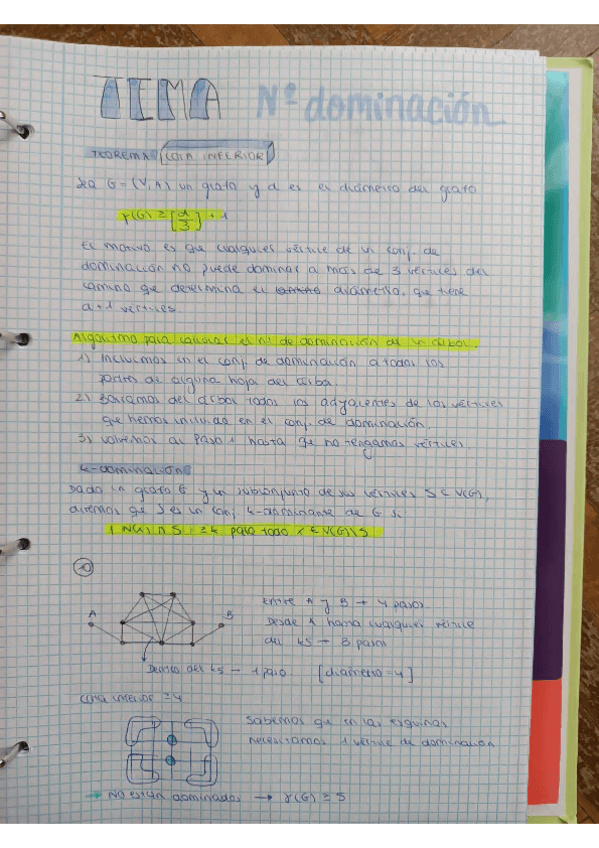 TEMA Nº dominación
TEOREMA COTA INFERIOR
Sea G = (V, A) un grafo y d es el diámetro del grafo
γ(G) ≥ [d/3] + 1
El motivo es que cualquier vértice de un conj. de
dominación no puede dominar a más de 3 vértices del
camino que determina el diámetro, que tiene
d+1 vértices.
Algoritmo para calcular el nº de dominación de un árbol.
1) Incluimos en el conj. de dominación a todos los
padres de alguna hoja del árbol.
2) Borramos del árbol todos los adyacentes de los vértices
que hemos incluido en el conj. de dominación.
3) Volvemos al paso 1 hasta que no tengamos vértices
k-dominación
Dado un grafo G y un subconjunto de sus vértices S ⊂ V(G),
diremos que S es un conj k-dominante de G si
| N(x) ∩ S | ≥ k para todo x ∈ V(G) \ S
10
A
B
Entre A y B → 4 pasos
Desde A hasta cualquier vértice
del K5 → 3 pasos
Dentro del K5 → 1 paso [diámetro = 4]
Cota inferior ≥ 4
Sabemos que en las esquinas
necesitamos 1 vértice de dominación
→ No están dominados → γ(G) ≥ 5